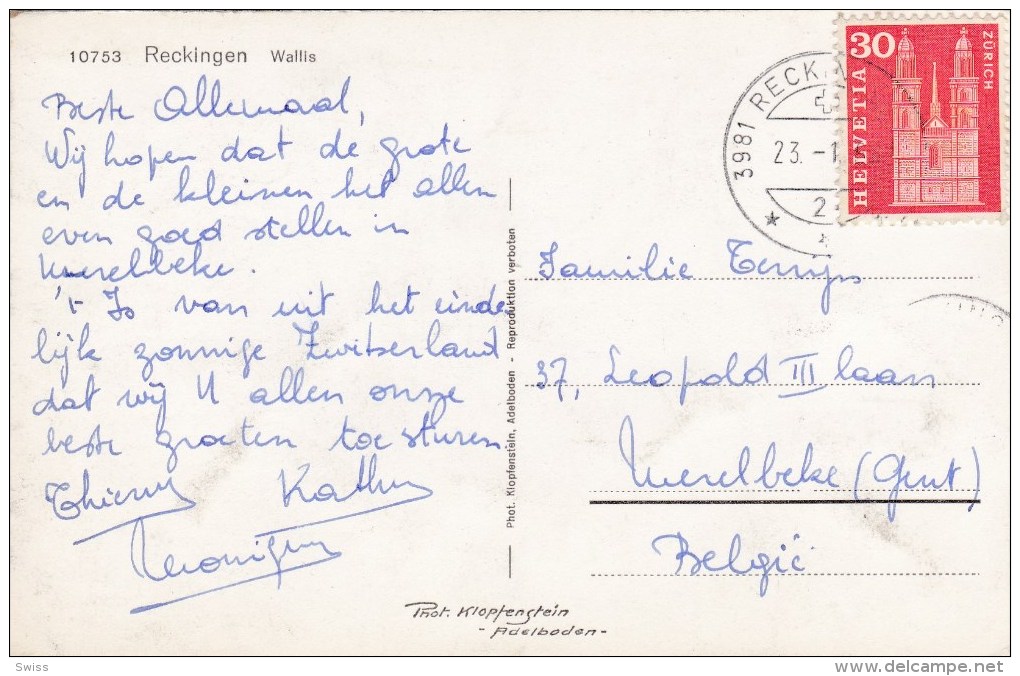 10753 Reckingen Wallis
Beste Allemaal,
Wij hopen dat de grote
en de kleinen het allen
even goed stellen in
Merelbeke.
't Is van uit het einde
lijk zonnige Zwitserland
dat wij U allen onze
beste groeten toe sturen
Thierry Kathy
Veronique
Phot. Klopfenstein, Adelboden - Reproduktion verboten
Phot. Klopfenstein
- Adelboden -
3981 RECK
23. -1
2
30
HELVETIA
ZÜRICH
Familie
37, Leopold III laan
Merelbeke (Gent)
België
Swiss
www.delcampe.net